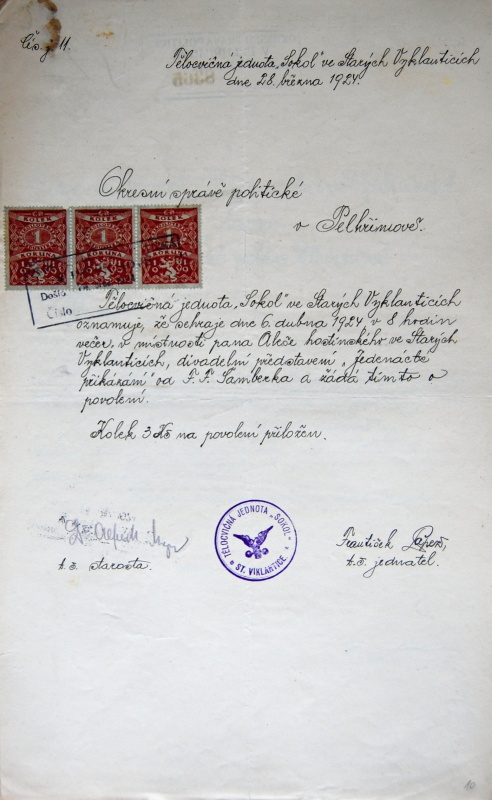 Čís. j. 11.
Tělocvičná jednota „Sokol" ve Starých Vyklanticích
dne 28. března 1924.
Okresní správě politické
v Pelhřimově.
Č.S.
KOLEK
1
KORUNA
Č.S.
KOLEK
1
KORUNA
Č.S.
KOLEK
1
KORUNA
Došlo
Číslo
Tělocvičná jednota „Sokol" ve Starých Vyklanticích
oznamuje, že sehraje dne 6. dubna 1924, v 8 hodin
večer, v místnosti pana Aleče hostinského ve Starých
Vyklanticích, divadelní představení „Jedenácté
přikázání" od F. F. Šamberka a žádá tímto o
povolení.
Kolek 3 Kč na povolení přiložen.
TĚLOCVIČNÁ JEDNOTA „SOKOL"
ST. VIKLANTICE
František
t. č. starosta.
t. č. jednatel.
10